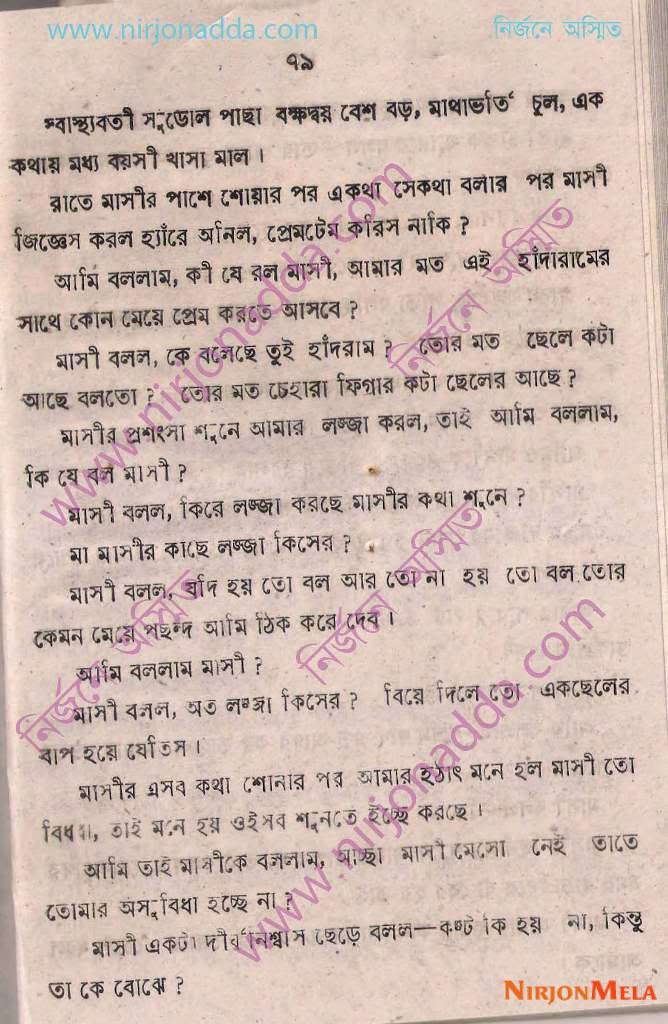 www.nirjonadda.com নির্জনে অস্মিত
৭৯
স্বাস্থ্যবতী সুডোল পাছা বক্ষদ্বয় বেশ বড়, মাথাভর্তি চুল, এক
কথায় মধ্য বয়সী খাসা মাল ।
রাতে মাসীর পাশে শোয়ার পর একথা সেকথা বলার পর মাসী
জিজ্ঞেস করল হ্যাঁরে অনিল, প্রেমটেম করিস নাকি ?
আমি বললাম, কী যে রল মাসী, আমার মত এই হাঁদারামের
সাথে কোন মেয়ে প্রেম করতে আসবে ?
মাসী বলল, কে বলেছে তুই হাঁদরাম ? তোর মত ছেলে কটা
আছে বলতো ? তোর মত চেহারা ফিগার কটা ছেলের আছে ?
মাসীর প্রশংসা শুনে আমার লজ্জা করল, তাই আমি বললাম,
কি যে বল মাসী ?
মাসী বলল, কিরে লজ্জা করছে মাসীর কথা শুনে ?
মা মাসীর কাছে লজ্জা কিসের ?
মাসী বলল, যদি হয় তো বল আর তো না হয় তো বল তোর
কেমন মেয়ে পছন্দ আমি ঠিক করে দেব ।
আমি বললাম মাসী ?
মাসী বলল, অত লজ্জা কিসের ? বিয়ে দিলে তো একছেলের
বাপ হয়ে যেতিস ।
মাসীর এসব কথা শোনার পর আমার হঠাৎ মনে হল মাসী তো
বিধবা, তাই মনে হয় ওইসব শুনতে ইচ্ছে করছে ।
আমি তাই মাসীকে বললাম, আচ্ছা মাসী মেসো নেই তাতে
তোমার অসুবিধা হচ্ছে না ?
মাসী একটা দীর্ঘনিশ্বাস ছেড়ে বলল—কষ্ট কি হয় না, কিন্তু
তা কে বোঝে ?
www.nirjonadda.com
নির্জনে অস্মিত
নির্জনে অস্মিত
নির্জনে অস্মিত
www.nirjonadda.com
NIRJONMELA